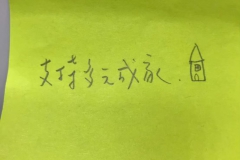 支持多元成家.